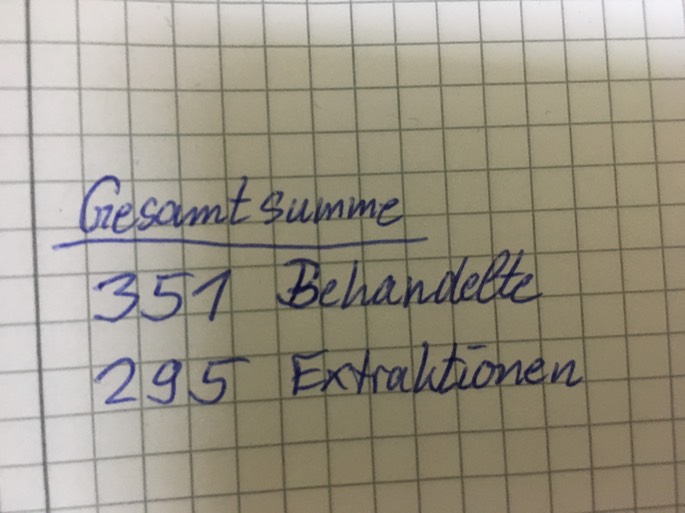 Gesamtsumme
351 Behandelte
295 Extraktionen